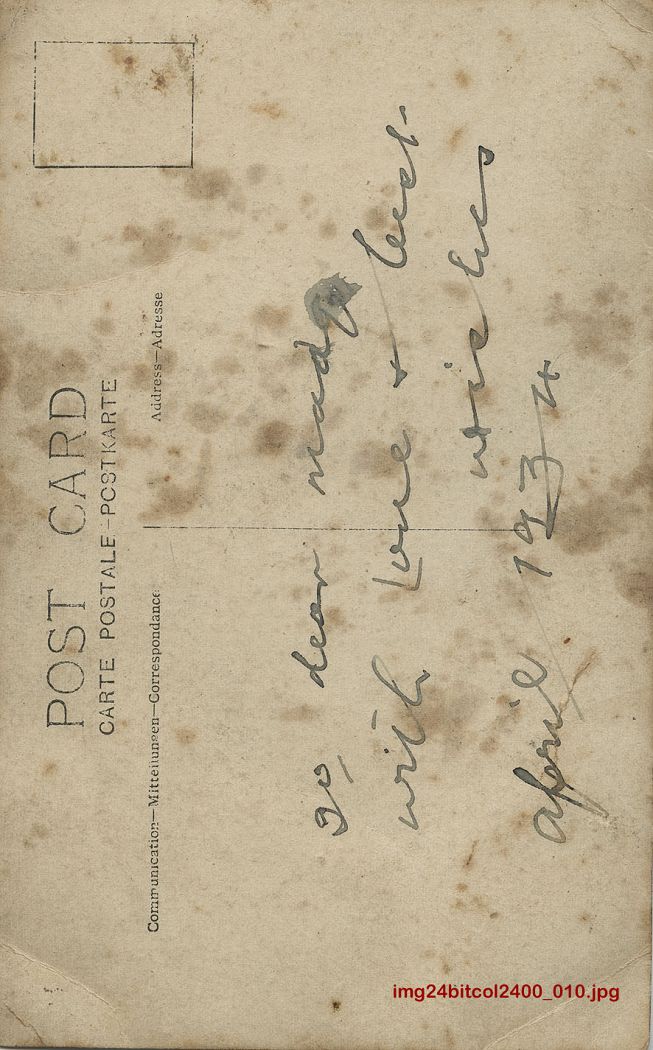 POST CARD
CARTE POSTALE-POSTKARTE
Communication—Mitteilungen—Correspondance
Address—Adresse
To dear madge
with Love & best
wishes
april 1934
img24bitcol2400_010.jpg